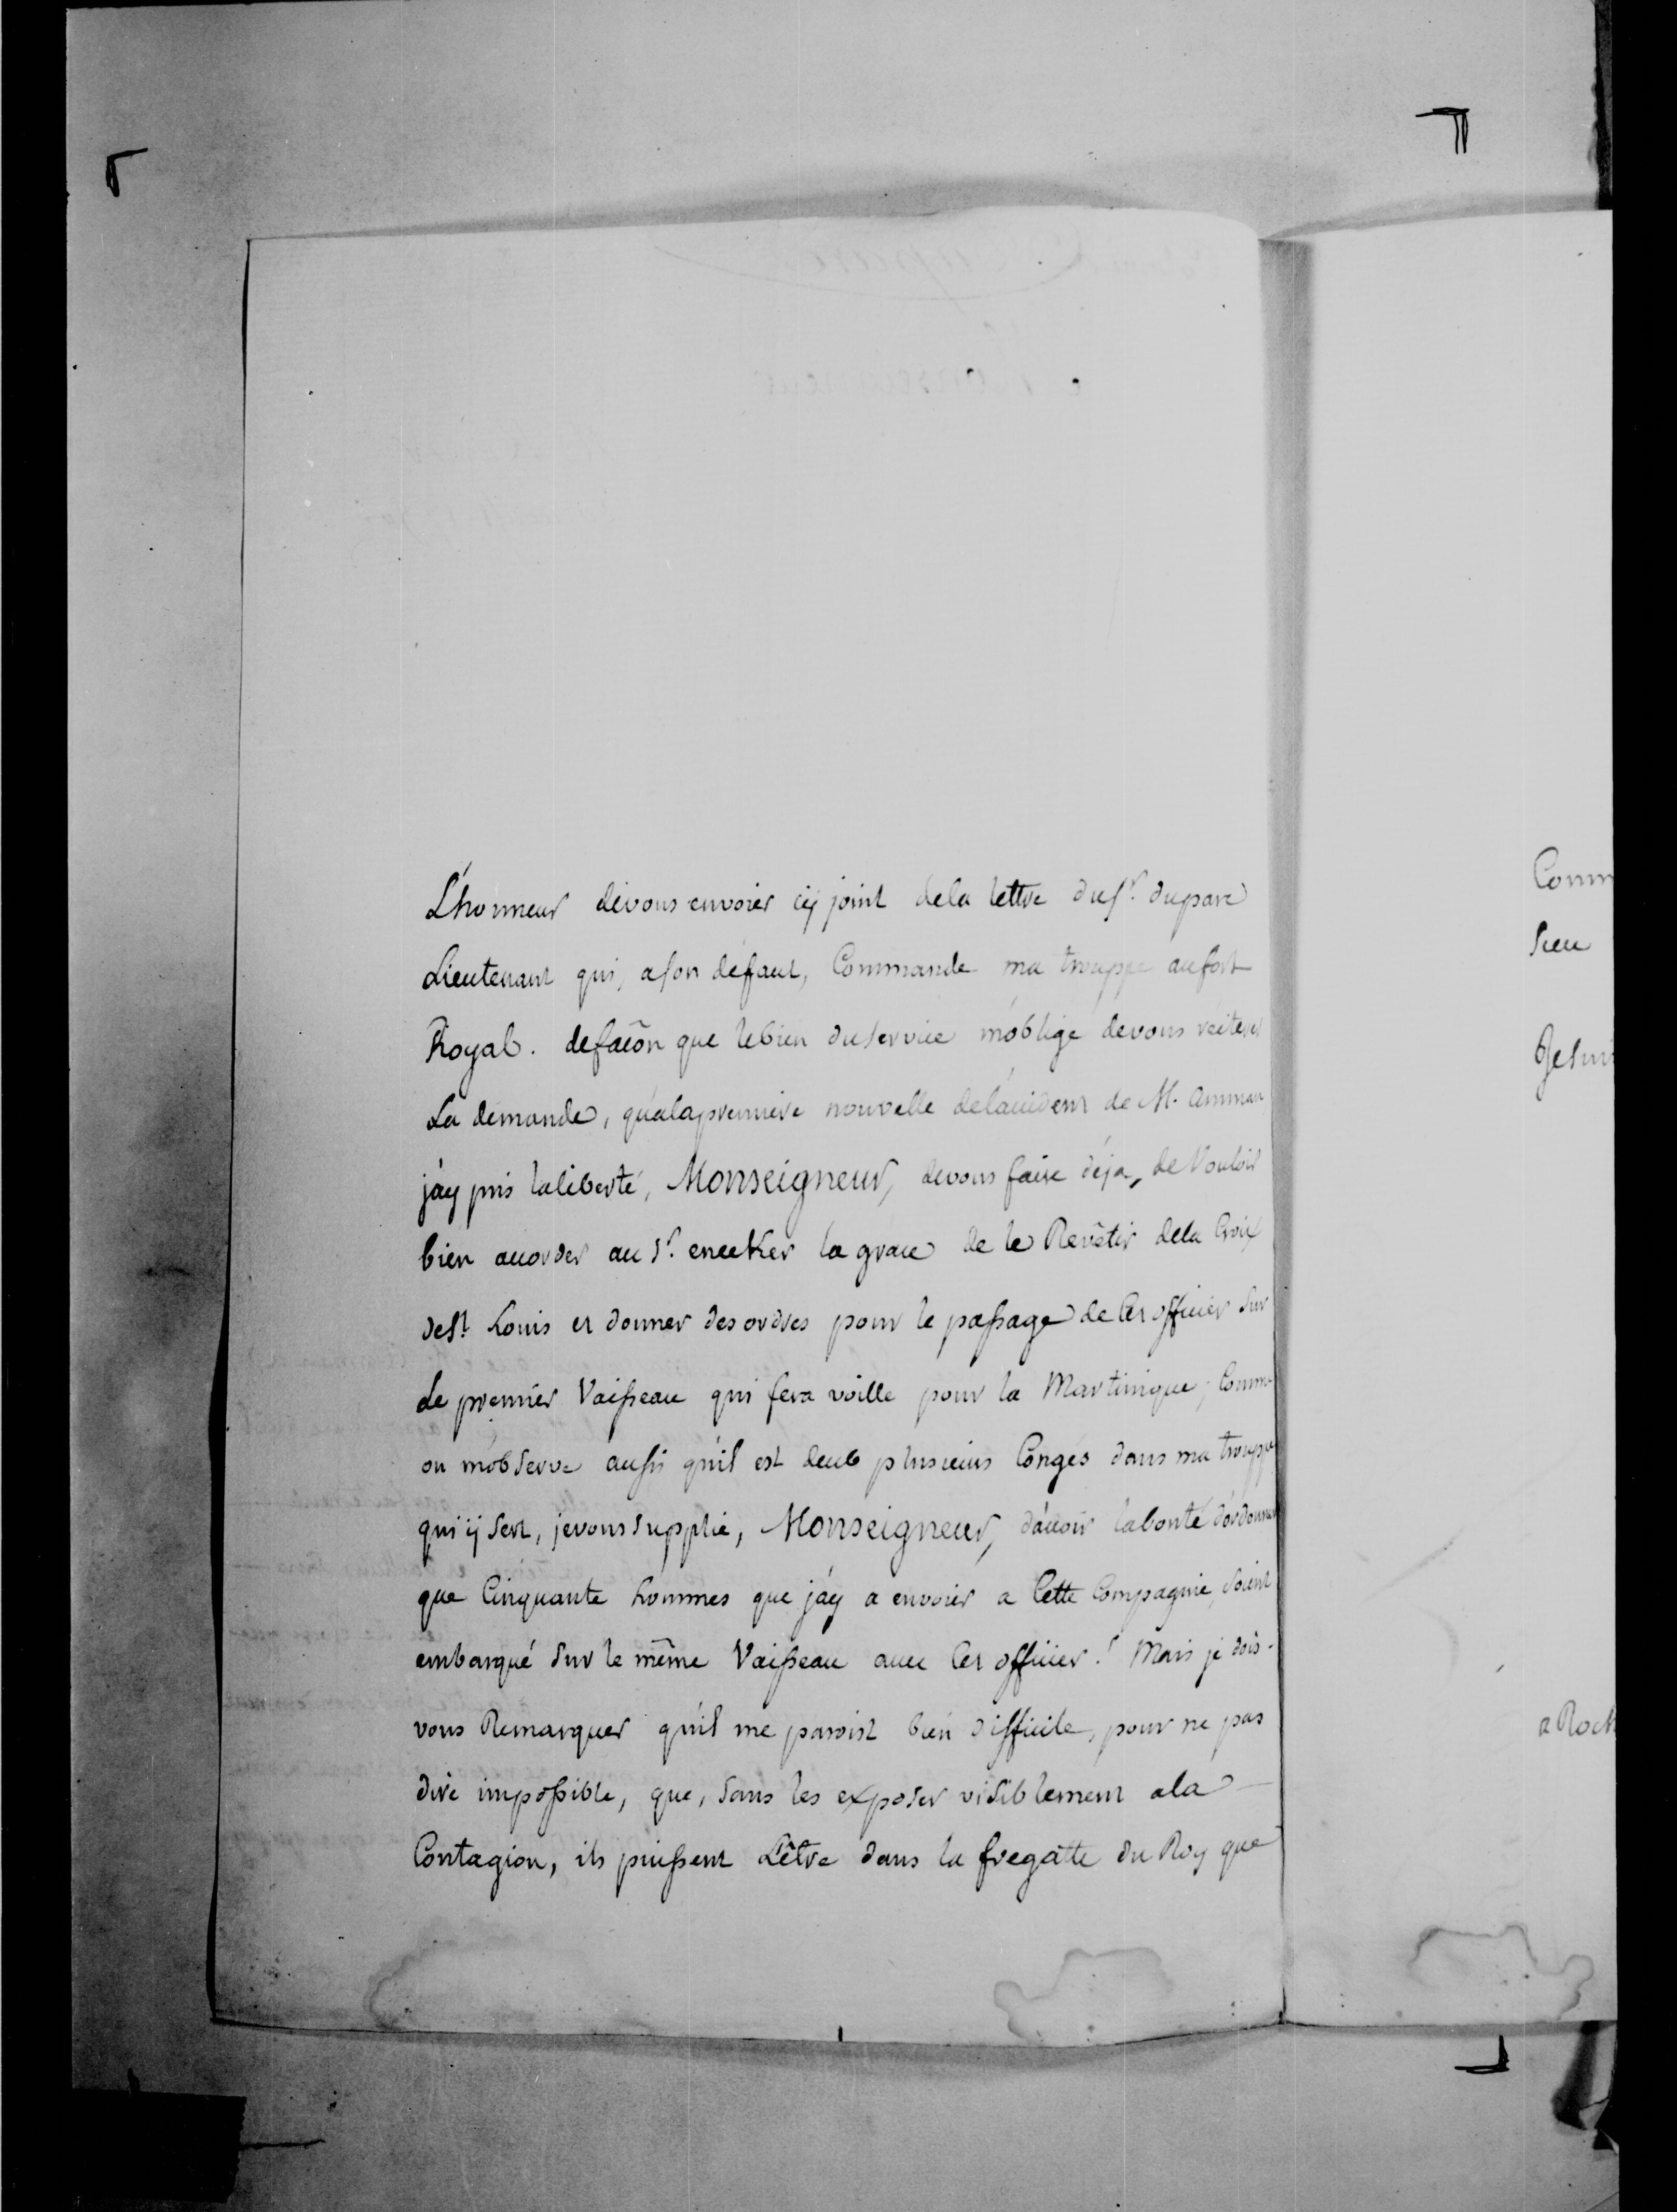 L'honneur devous envoier cÿ joint dela lettre du Sr. duparc
Lieutenant qui, a son défaut, Commande ma trouppe aufort
Royal. defaçon que lebien duservice m'oblige devous réiterer
La demande, qu'alapremiere nouvelle del'accident de M. Amman
j'ay pris laliberté, Monseigneur, devous faire déja, de Vouloir
bien accorder au Sr. eneeker la grace de le Revêtir dela Croix
deSt. Louis et donner des ordres pour le passage de Cet officier sur
Le premier Vaisseau qui fera voille pour la Martinique; Comme
on m'observe aussi qu'il est deub plusieurs Congés dans ma trouppe
qui ÿ sert, jevous supplie, Monseigneur, d'avoir labonté d'ordonner
que Cinquante hommes que j'ay a envoier a Cette Compagnie, soient
embarqué sur le même Vaisseau avec Cet officier! Mais je dois
vous Remarquer qu'il me paroist bien difficile, pour ne pas
dire impossible, que, sans les exposer visiblement ala
Contagion, ils puissent L'être dans la fregatte du Roy que
Comm
a Roch